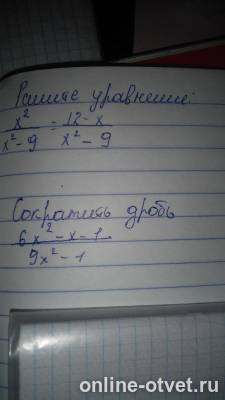 Решите уравнение:
x²/x²-9 = 12-x/x²-9
Сократить дробь
6x²-x-1/9x²-1
online-otvet.ru